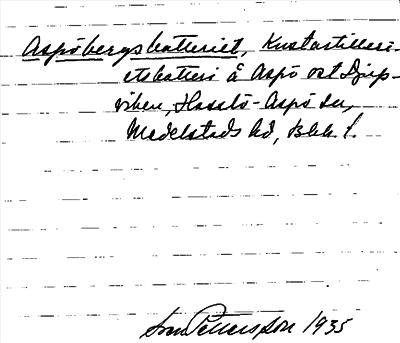 Aspöbergsbatteriet, Kustartilleri-
etsbatteri å Aspö ost Djup-
viken, Hasslö-Aspö sn,
Medelstads hd, Blek. l.
Pettersson 1935